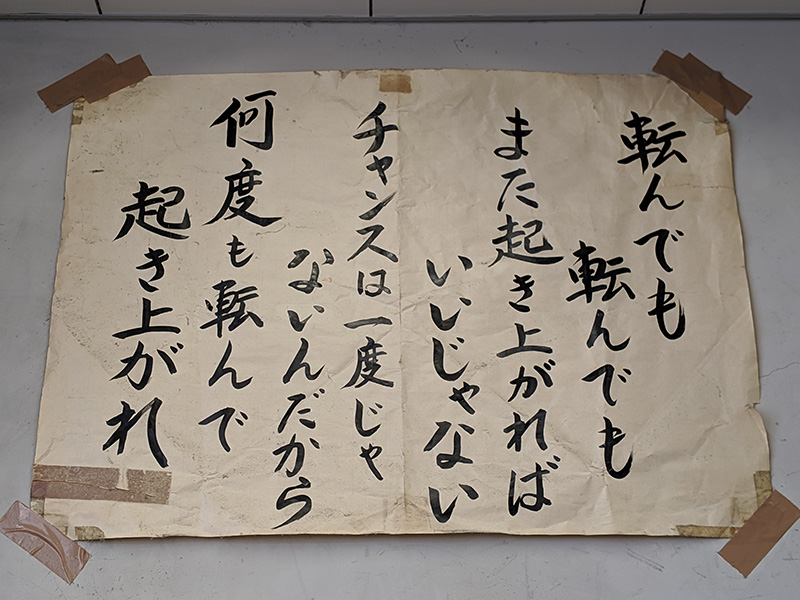 転んでも
転んでも
また起き上がれば
いいじゃない
チャンスは一度じゃ
ないんだから
何度も転んで
起き上がれ